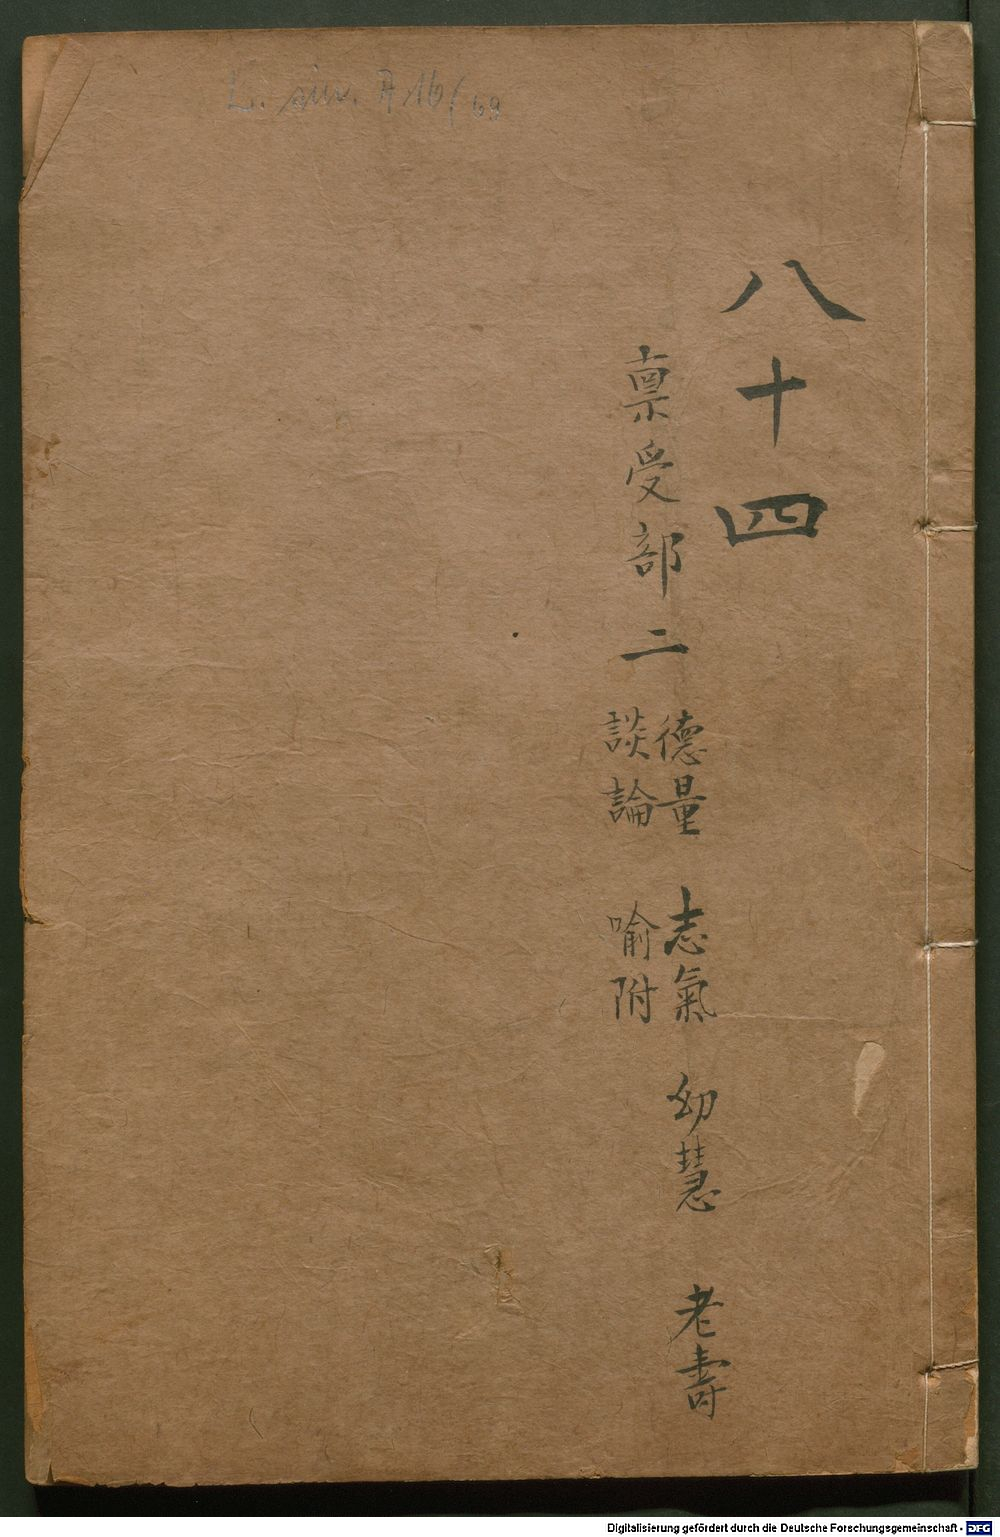 L. sin. A 16/69
八十四
禀受部二
德量 志氣 幼慧 老壽
談論 喻附
Digitalisierung gefördert durch die Deutsche Forschungsgemeinschaft - DFG